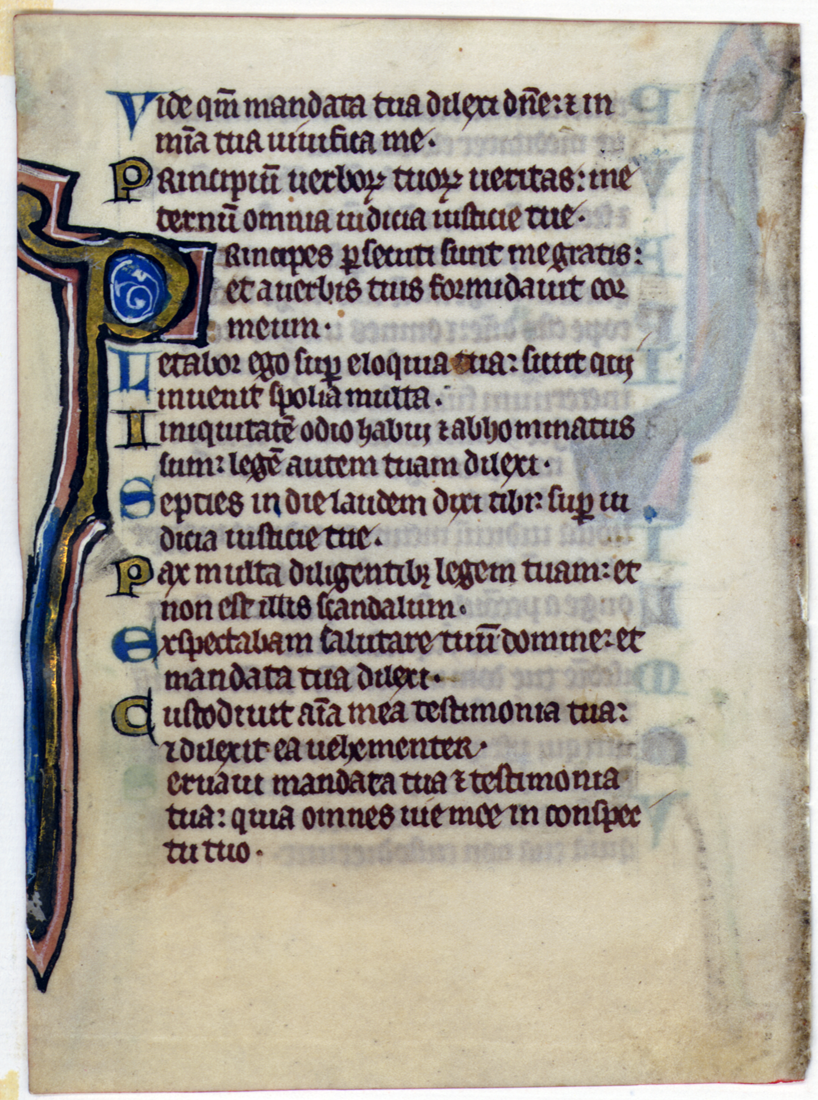 Vide qm̄ mandata tua dilexi dn̄e: ⁊ in
mīa tua uiuifica me.
Principiū uerboꝝ tuoꝝ ueritas: ine
ternū omnia iudicia iusticie tue.
Principes ꝑsecuti sunt me gratis:
et a uerbis tuis formidauit cor
meum.
Letabor ego suꝑ eloquia tua: sicut qui
inuenit spolia multa.
Iniquitatē odio habui ⁊ abhominatus
sum: legē autem tuam dilexi.
Septies in die laudem dixi tibi: suꝑ iu
dicia iusticie tue.
Pax multa diligentibꝫ legem tuam: et
non est illis scandalum.
Exspectabam salutare tuū domine: et
mandata tua dilexi.
Custodiuit aīa mea testimonia tua:
⁊ dilexit ea uehementer.
eruaui mandata tua ⁊ testimonia
tua: quia omnes uie mee in conspec
tu tuo.